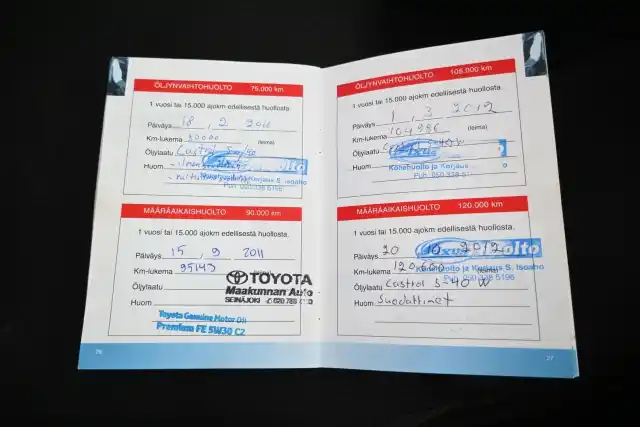 ÖLJYNVAIHTOHUOLTO 75.000 km
1 vuosi tai 15.000 ajokm edellisestä huollosta.
Päiväys 18, 2 2011
Km-lukema 80000 (leima)
Öljylaatu Castrol 5w40
Huom
Konehuolto ja Korjaus S. Isoaho
Puh. 050 338 5196
MÄÄRÄAIKAISHUOLTO 90.000 km
1 vuosi tai 15.000 ajokm edellisestä huollosta.
Päiväys 15, 9 2011
Km-lukema 95143 (leima)
Öljylaatu
Huom
TOYOTA
Maakunnan Auto
SEINÄJOKI
Toyota Genuine Motor Oil
Premium FE 5W30 C2
26
ÖLJYNVAIHTOHUOLTO 105.000 km
1 vuosi tai 15.000 ajokm edellisestä huollosta.
Päiväys 1, 3 2012
Km-lukema 104996 (leima)
Öljylaatu Castrol 5-40W
Huom
Konehuolto ja Korjaus
Puh. 050 338 5
MÄÄRÄAIKAISHUOLTO 120.000 km
1 vuosi tai 15.000 ajokm edellisestä huollosta.
Päiväys 20 10 2012
Km-lukema 120600 (leima)
Konehuolto ja Korjaus S. Isoaho
Puh. 050 338 5196
Öljylaatu Castrol 5-40 W
Huom Suodattimet
27